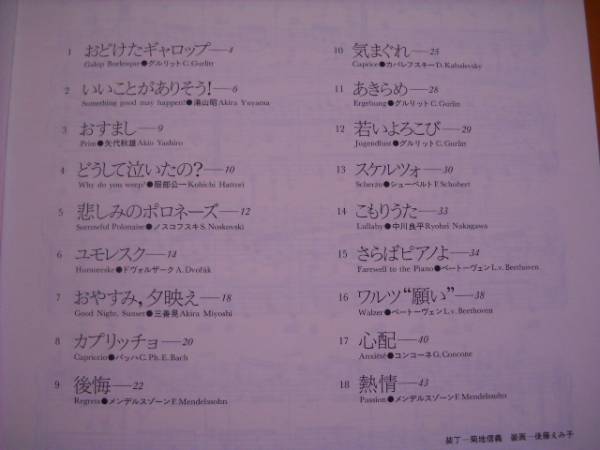 1 おどけたギャロップ—4
Galop Burlesque●グルリット C. Gurlitt
2 いいことがありそう!—6
Something good may happen!●湯山昭 Akira Yuyama
3 おすまし—9
Prim●矢代秋雄 Akio Yashiro
4 どうして泣いたの?—10
Why do you weep?●服部公一 Kohichi Hattori
5 悲しみのポロネーズ—12
Sorrowful Polonaise●ノスコフスキ S. Noskovski
6 ユモレスク—14
Humoreske●ドヴォルザーク A. Dvořák
7 おやすみ,夕映え—18
Good Night, Sunset●三善晃 Akira Miyoshi
8 カプリッチョ—20
Capriccio●バッハ C. Ph. E. Bach
9 後悔—22
Regrets●メンデルスゾーン F. Mendelssohn
10 気まぐれ—25
Caprice●カバレフスキー D. Kabalevsky
11 あきらめ—28
Ergebung●グルリット C. Gurlitt
12 若いよろこび—29
Jugendlust●グルリット C. Gurlitt
13 スケルツォ—30
Scherzo●シューベルト F. Schubert
14 こもりうた—33
Lullaby●中川良平 Ryohei Nakagawa
15 さらばピアノよ—34
Farewell to the Piano●ベートーヴェン L. v. Beethoven
16 ワルツ“願い”—38
Walzer●ベートーヴェン L. v. Beethoven
17 心配—40
Anxiété●コンコーネ G. Concone
18 熱情—43
Passion●メンデルスゾーン F. Mendelssohn
装丁—菊地信義 装画—後藤えみ子